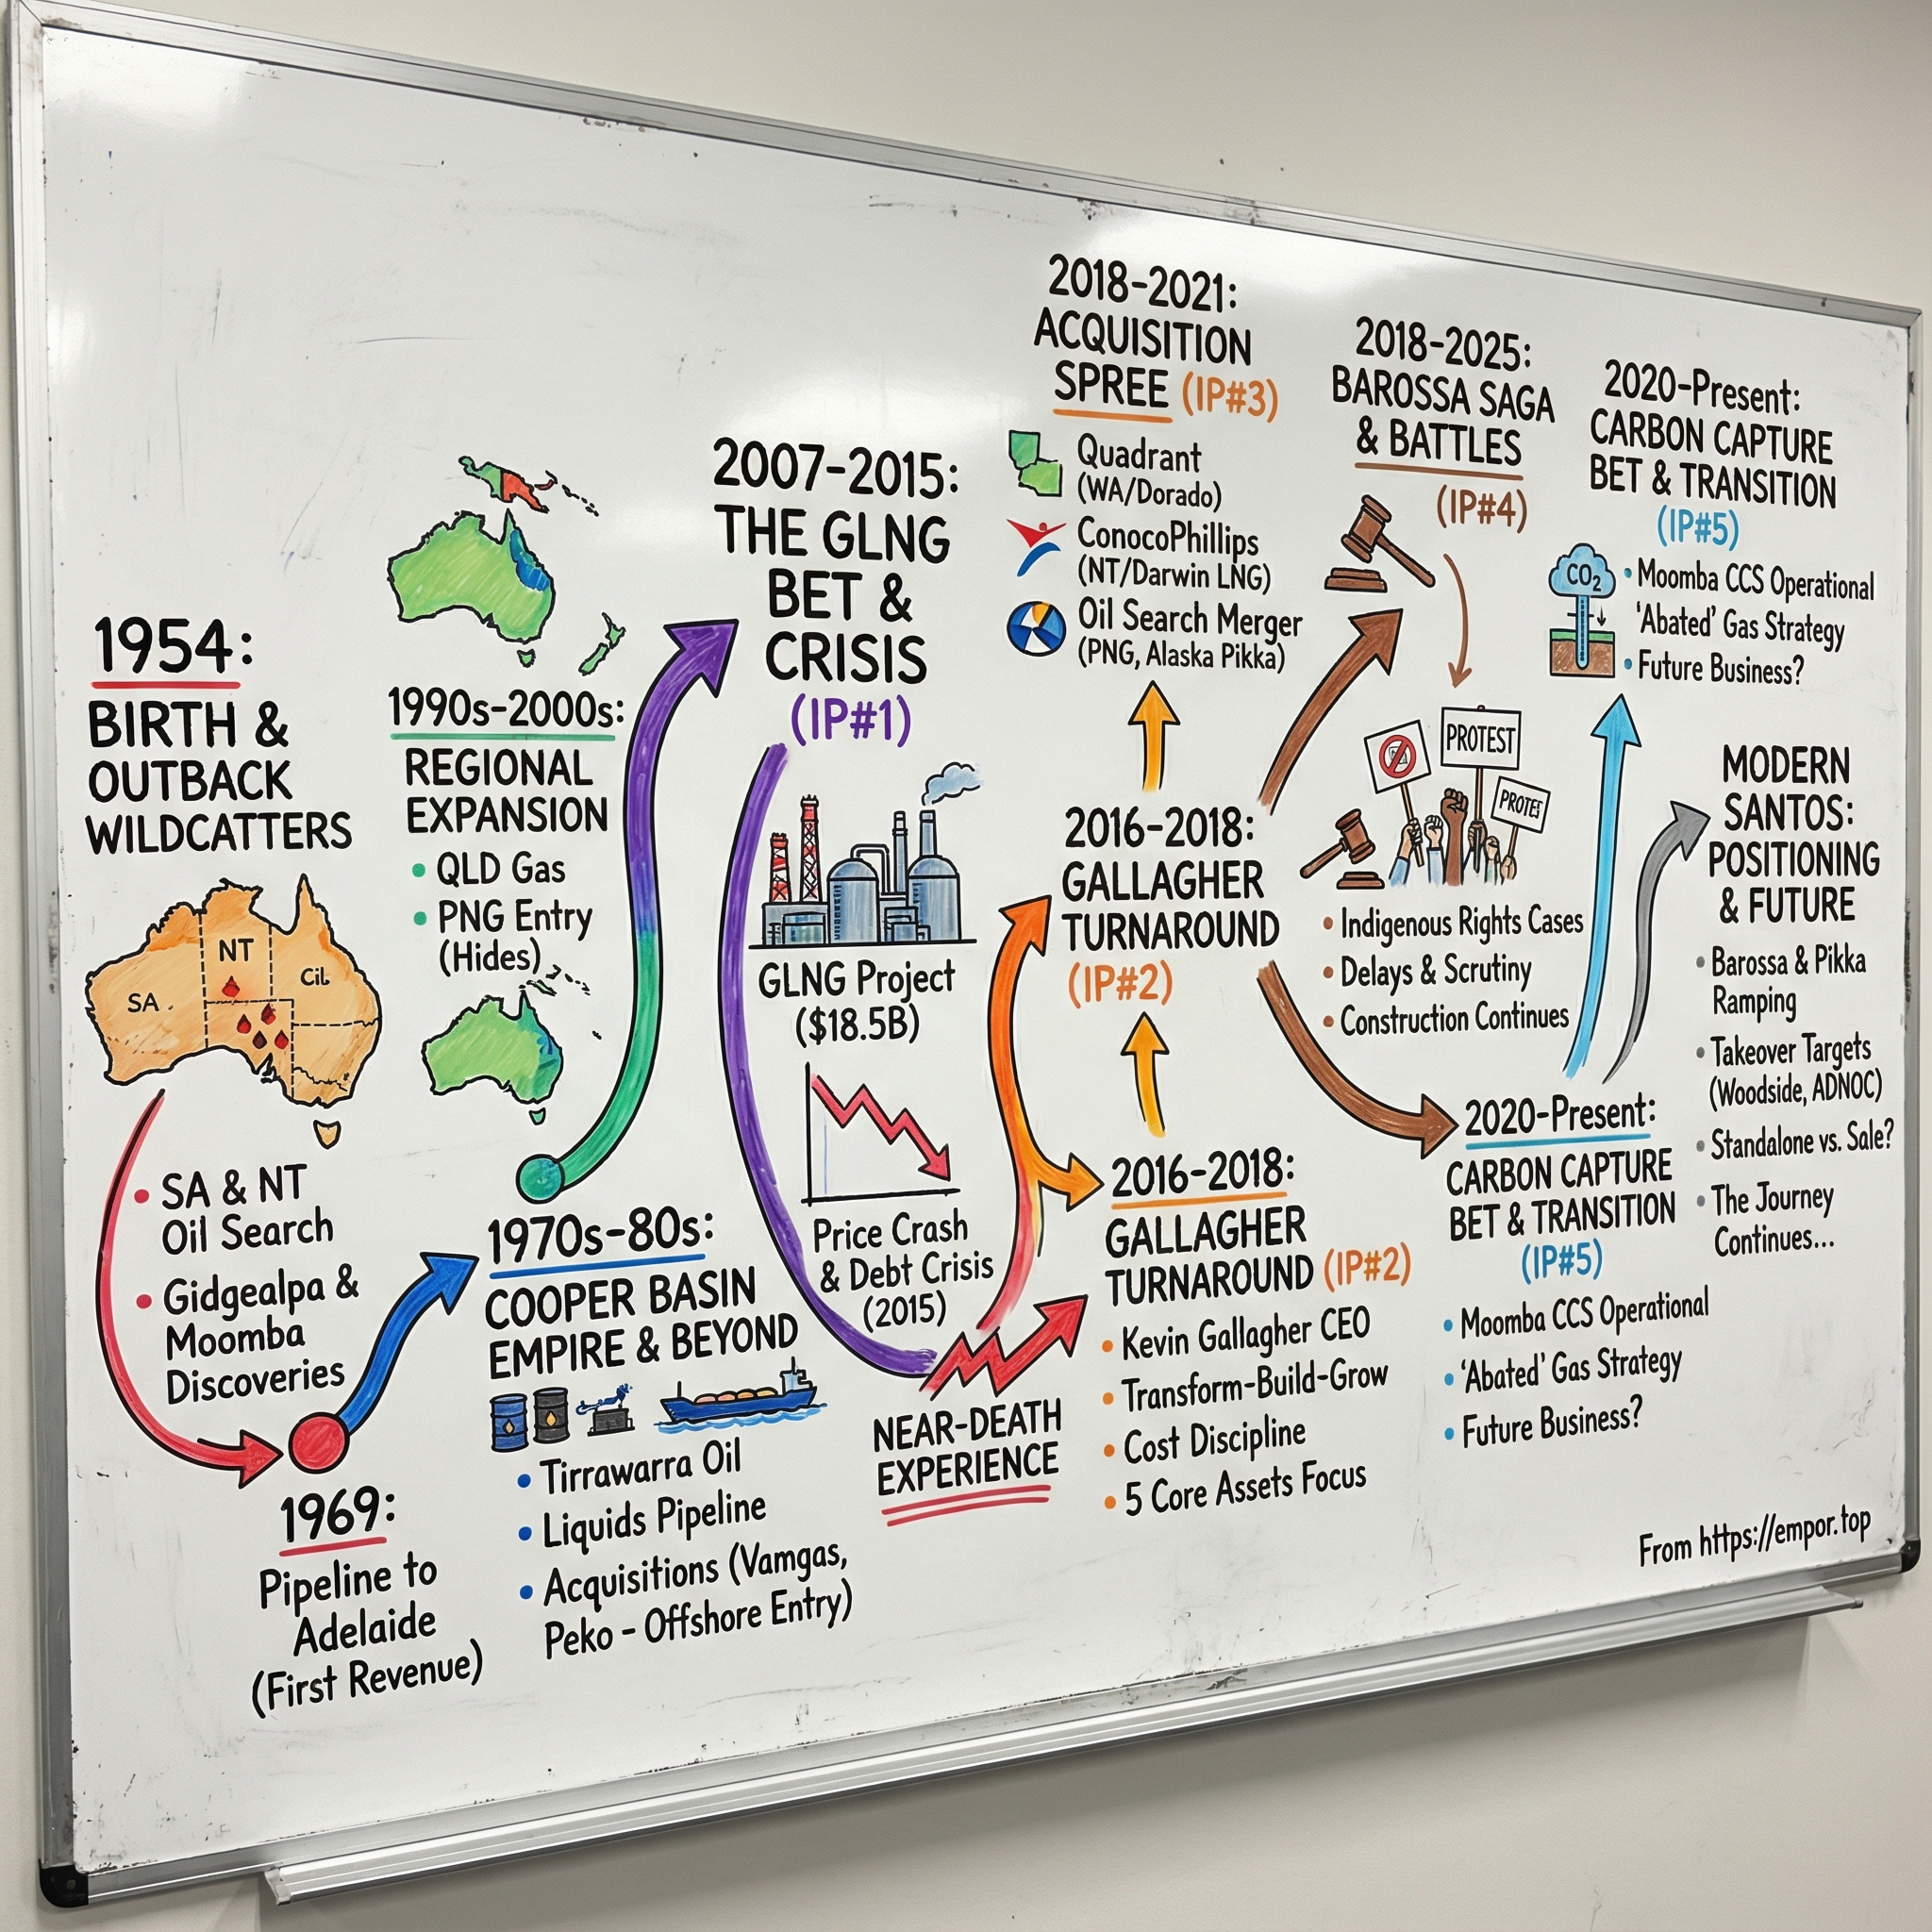 1954:
BIRTH &
OUTBACK
WILDCATTERS
NT
SA
CiL
• SA & NT
Oil Search
• Gidgealpa &
Moomba
Discoveries
1969:
Pipeline to
Adelaide
(First Revenue)
1990s-2000s:
REGIONAL
EXPANSION
• QLD Gas
• PNG Entry
(Hides)
1970s-80s:
COOPER BASIN
EMPIRE & BEYOND
• Tirrawarra Oil
• Liquids Pipeline
• Acquisitions (Vamgas,
Peko - Offshore Entry)
2007-2015:
THE GLNG
BET &
CRISIS
(IP#1)
GLNG Project
($18.5B)
Price Crash
& Debt Crisis
(2015)
NEAR-DEATH
EXPERIENCE
2018-2021:
ACQUISITION
SPREE (IP#3)
Quadrant
(WA/Dorado)
ConocoPhillips
(NT/Darwin LNG)
Oil Search Merger
(PNG, Alaska Pikka)
2016-2018:
GALLAGHER
TURNAROUND
(IP#2)
2016-2018:
GALLAGHER
TURNAROUND (IP#2)
• Kevin Gallagher CEO
• Transform-Build-Grow
• Cost Discipline
• 5 Core Assets Focus
2018-2025:
BAROSSA SAGA
& BATTLES
(IP#4)
PROTEST
PROTEST
• Indigenous Rights Cases
• Delays & Scrutiny
• Construction Continues
2020-Present:
CARBON CAPTURE
BET & TRANSITION
(IP#5)
CO₂
• Moomba CCS Operational
'Abated' Gas Strategy
• Future Business?
2020-Present:
CARBON CAPTURE
BET & TRANSITION
(IP#5)
• Moomba CCS Operational
• 'Abated' Gas Strategy
• Future Business?
MODERN
SANTOS:
POSITIONING
& FUTURE
• Barossa & Pikka
Ramping
• Takeover Targets
(Woodside, ADNOC)
• Standalone vs. Sale?
• The Journey
Continues...
From https://empor.top